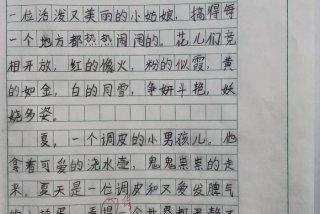 一位活泼又美丽的小姑娘,搞得每
一个地方都热热闹闹的。花儿们竞
相开放,红的像火,粉的似霞,黄
的如金,白的同雪,争妍斗艳,妖
娆多姿。
夏,一个调皮的小男孩儿,他
拿着可爱的浇水壶,鬼鬼祟祟的走
来。夏天是一位调皮和又爱发脾气